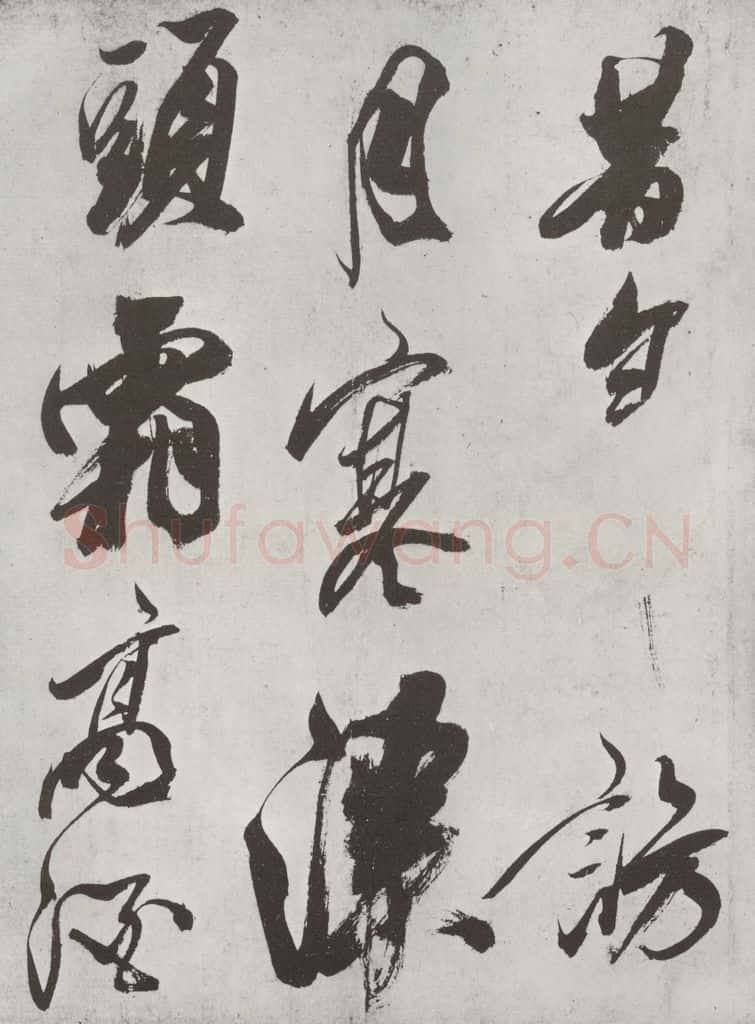 昔自訪
月寒津
頭霜高酒
Shufawang.CN